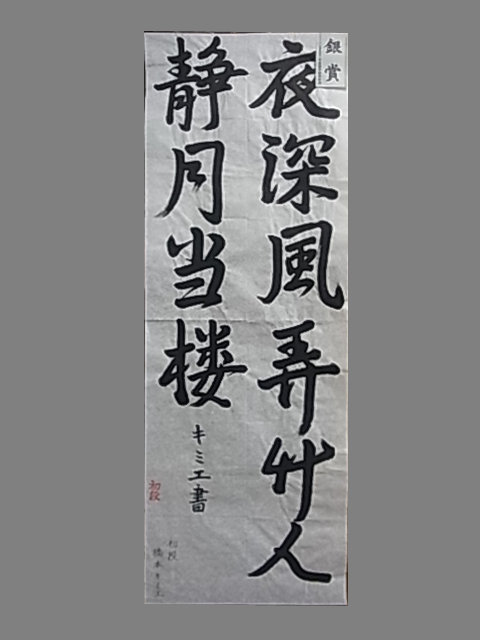 銀賞
夜深風弄竹人
静月当楼
キミエ書
初段
初段
橋本キミエ